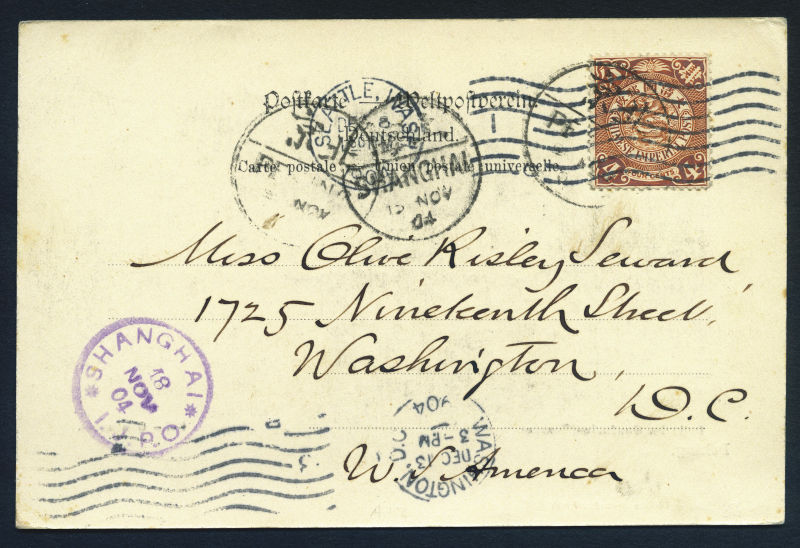 Postkarte Weltpostverein
Deutschland.
Carte postale Union postale universelle.
SEATTLE, WASH.
DEC 8
SHANGHAI
NOV
Miss Olive Risley Seward
1725 Nineteenth Street,
Washington,
D.C.
U.S. America
SHANGHAI
18
NOV
04
I.J.P.O.
WASHINGTON, D.C.
DEC 13
3-PM
1904
IMPERIAL
4